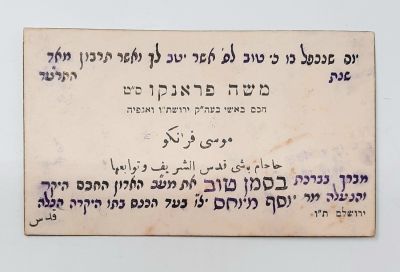 יום שנכפל בו כי טוב לס' אשר יטב לך ואשר תירבון מאד
שנת התרע״ד
משה פראנקו ס״ט
חכם באשי בעה״ק ירושת״ו ואגפיה
موسى فرانكو
حاخام باشى قدس الشريف وتوابعها
מברך בברכת בסמן טוב את מע״ב הארון החכם היקר
והנעלה מר יוסף מיוחס יצ״ו בעד הכנס בתו היקרה הכלה
ירושלם ת״ו
قدس